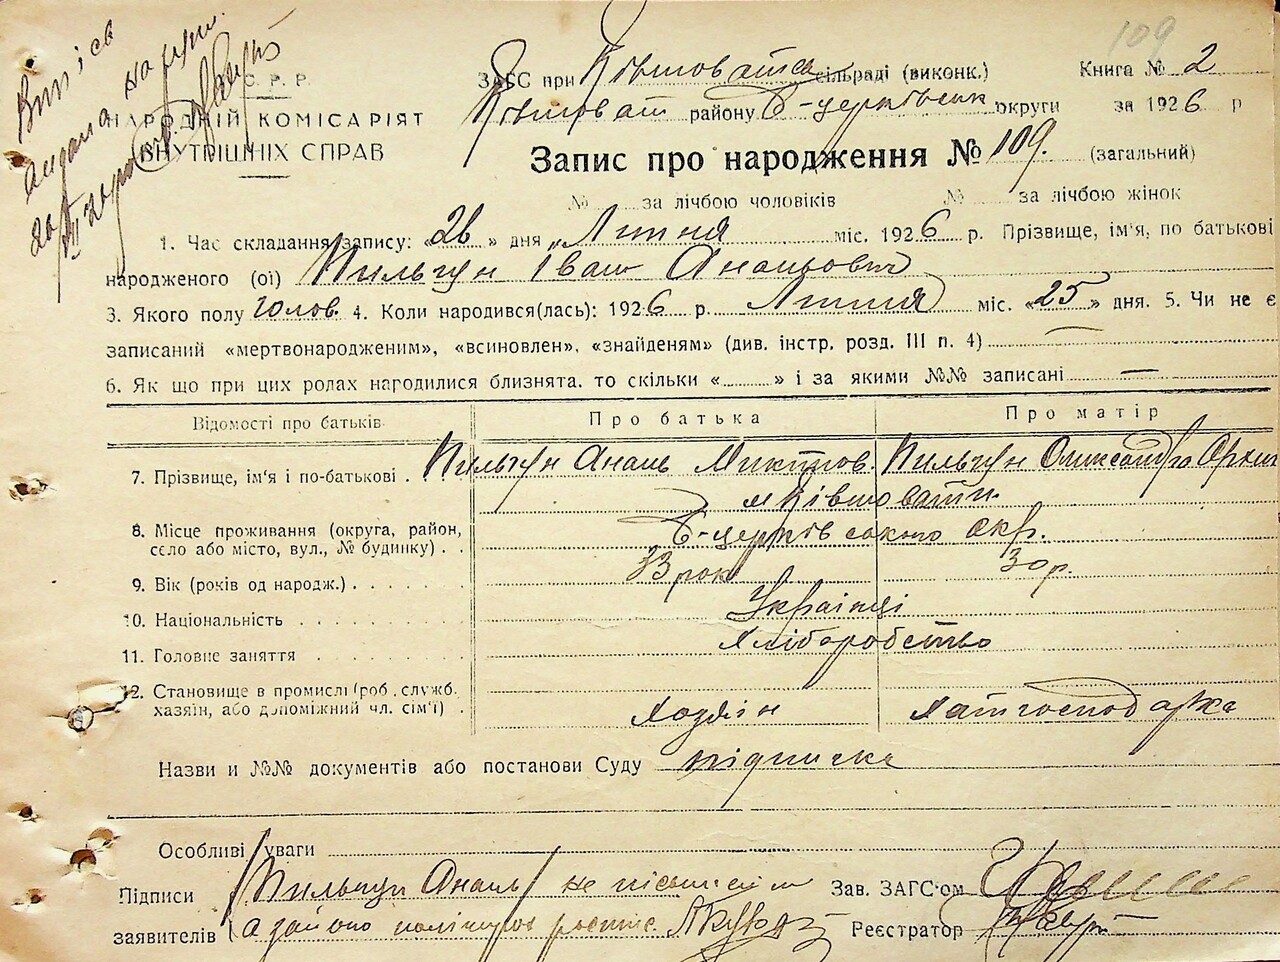 109
Випись
видана на руки
С. Р. Р.
НАРОДНІЙ КОМІСАРІЯТ
ВНУТРІШНІХ СПРАВ
ЗАГС при Ківшоватськ сільраді (виконк.) Книга № 2
Ківшоват району Б-церківськ округи за 1926 р
Запис про народження № 109. (загальний)
№ за лічбою чоловіків № за лічбою жінок
1. Час складання запису: «26» дня „Липня міс. 1926 р. Прізвище, ім'я, по батькові
народженого (ої) Пильгун Іван Ананьович
3. Якого полу Чолов. 4. Коли народився(лась): 1926 р. Липня міс. «25» дня. 5. Чи не є
записаний «мертвонародженим», «всиновлен», «знайденям» (див. інстр. розд. III п. 4) —
6. Як що при цих ролах нагодилися близнята. то скільки « » і за якими №№ записані —
Відомості про батьків Про батька Про матір
7. Прізвище, ім'я і по-батькові . Пильгун Анань Микитов. Пильгун Олександра Архип
м Ківшовати.
8. Місце проживання (округа, район, Б-церківського окр.
село або місто, вул., № будинку) . .
9. Вік (років од народж.) . . . . . . 33 рок 30 р.
10. Національність . . . . . . . . Українці
11. Головне заняття . . . . . . . . Хліборобство
12. Становище в промислі (роб., служб.
хазяїн, або допоміжний чл. сім'ї) . Хазяїн Хатгосподарка
Назви и №№ документів або постанови Суду підписка
Особливі уваги
Підписи Пильгун Анань не письмен Зав. ЗАГС'ом
заявителів а за його розпис Реєстратор